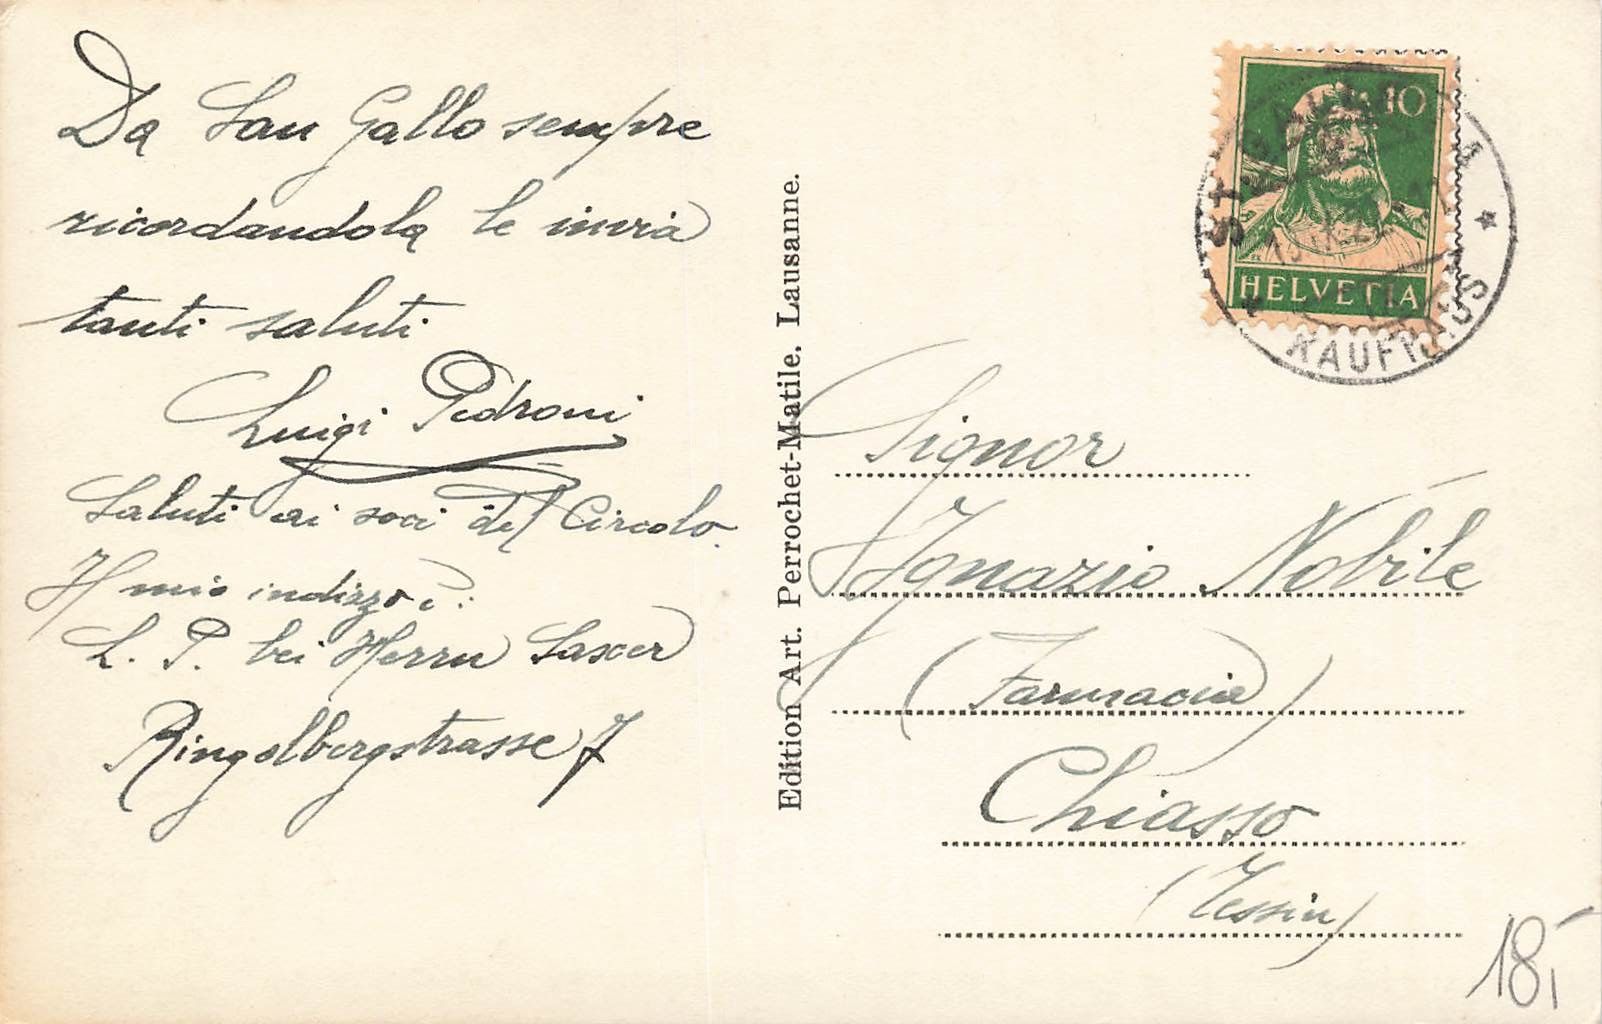 Da San Gallo sempre
ricordandola le invia
tanti saluti
Luigi Pedroni
Saluti ai soci del Circolo.
Il mio indizzo è:
L. P. bei Herrn Saxer
Ringelbergstrasse 7
Edition Art. Perrochet-Matile, Lausanne.
10
HELVETIA
ST. GALLEN 1
KAUFHAUS
Signor
Ignazio Nobile
(Farmacia)
Chiasso
(Tessin)
18,-